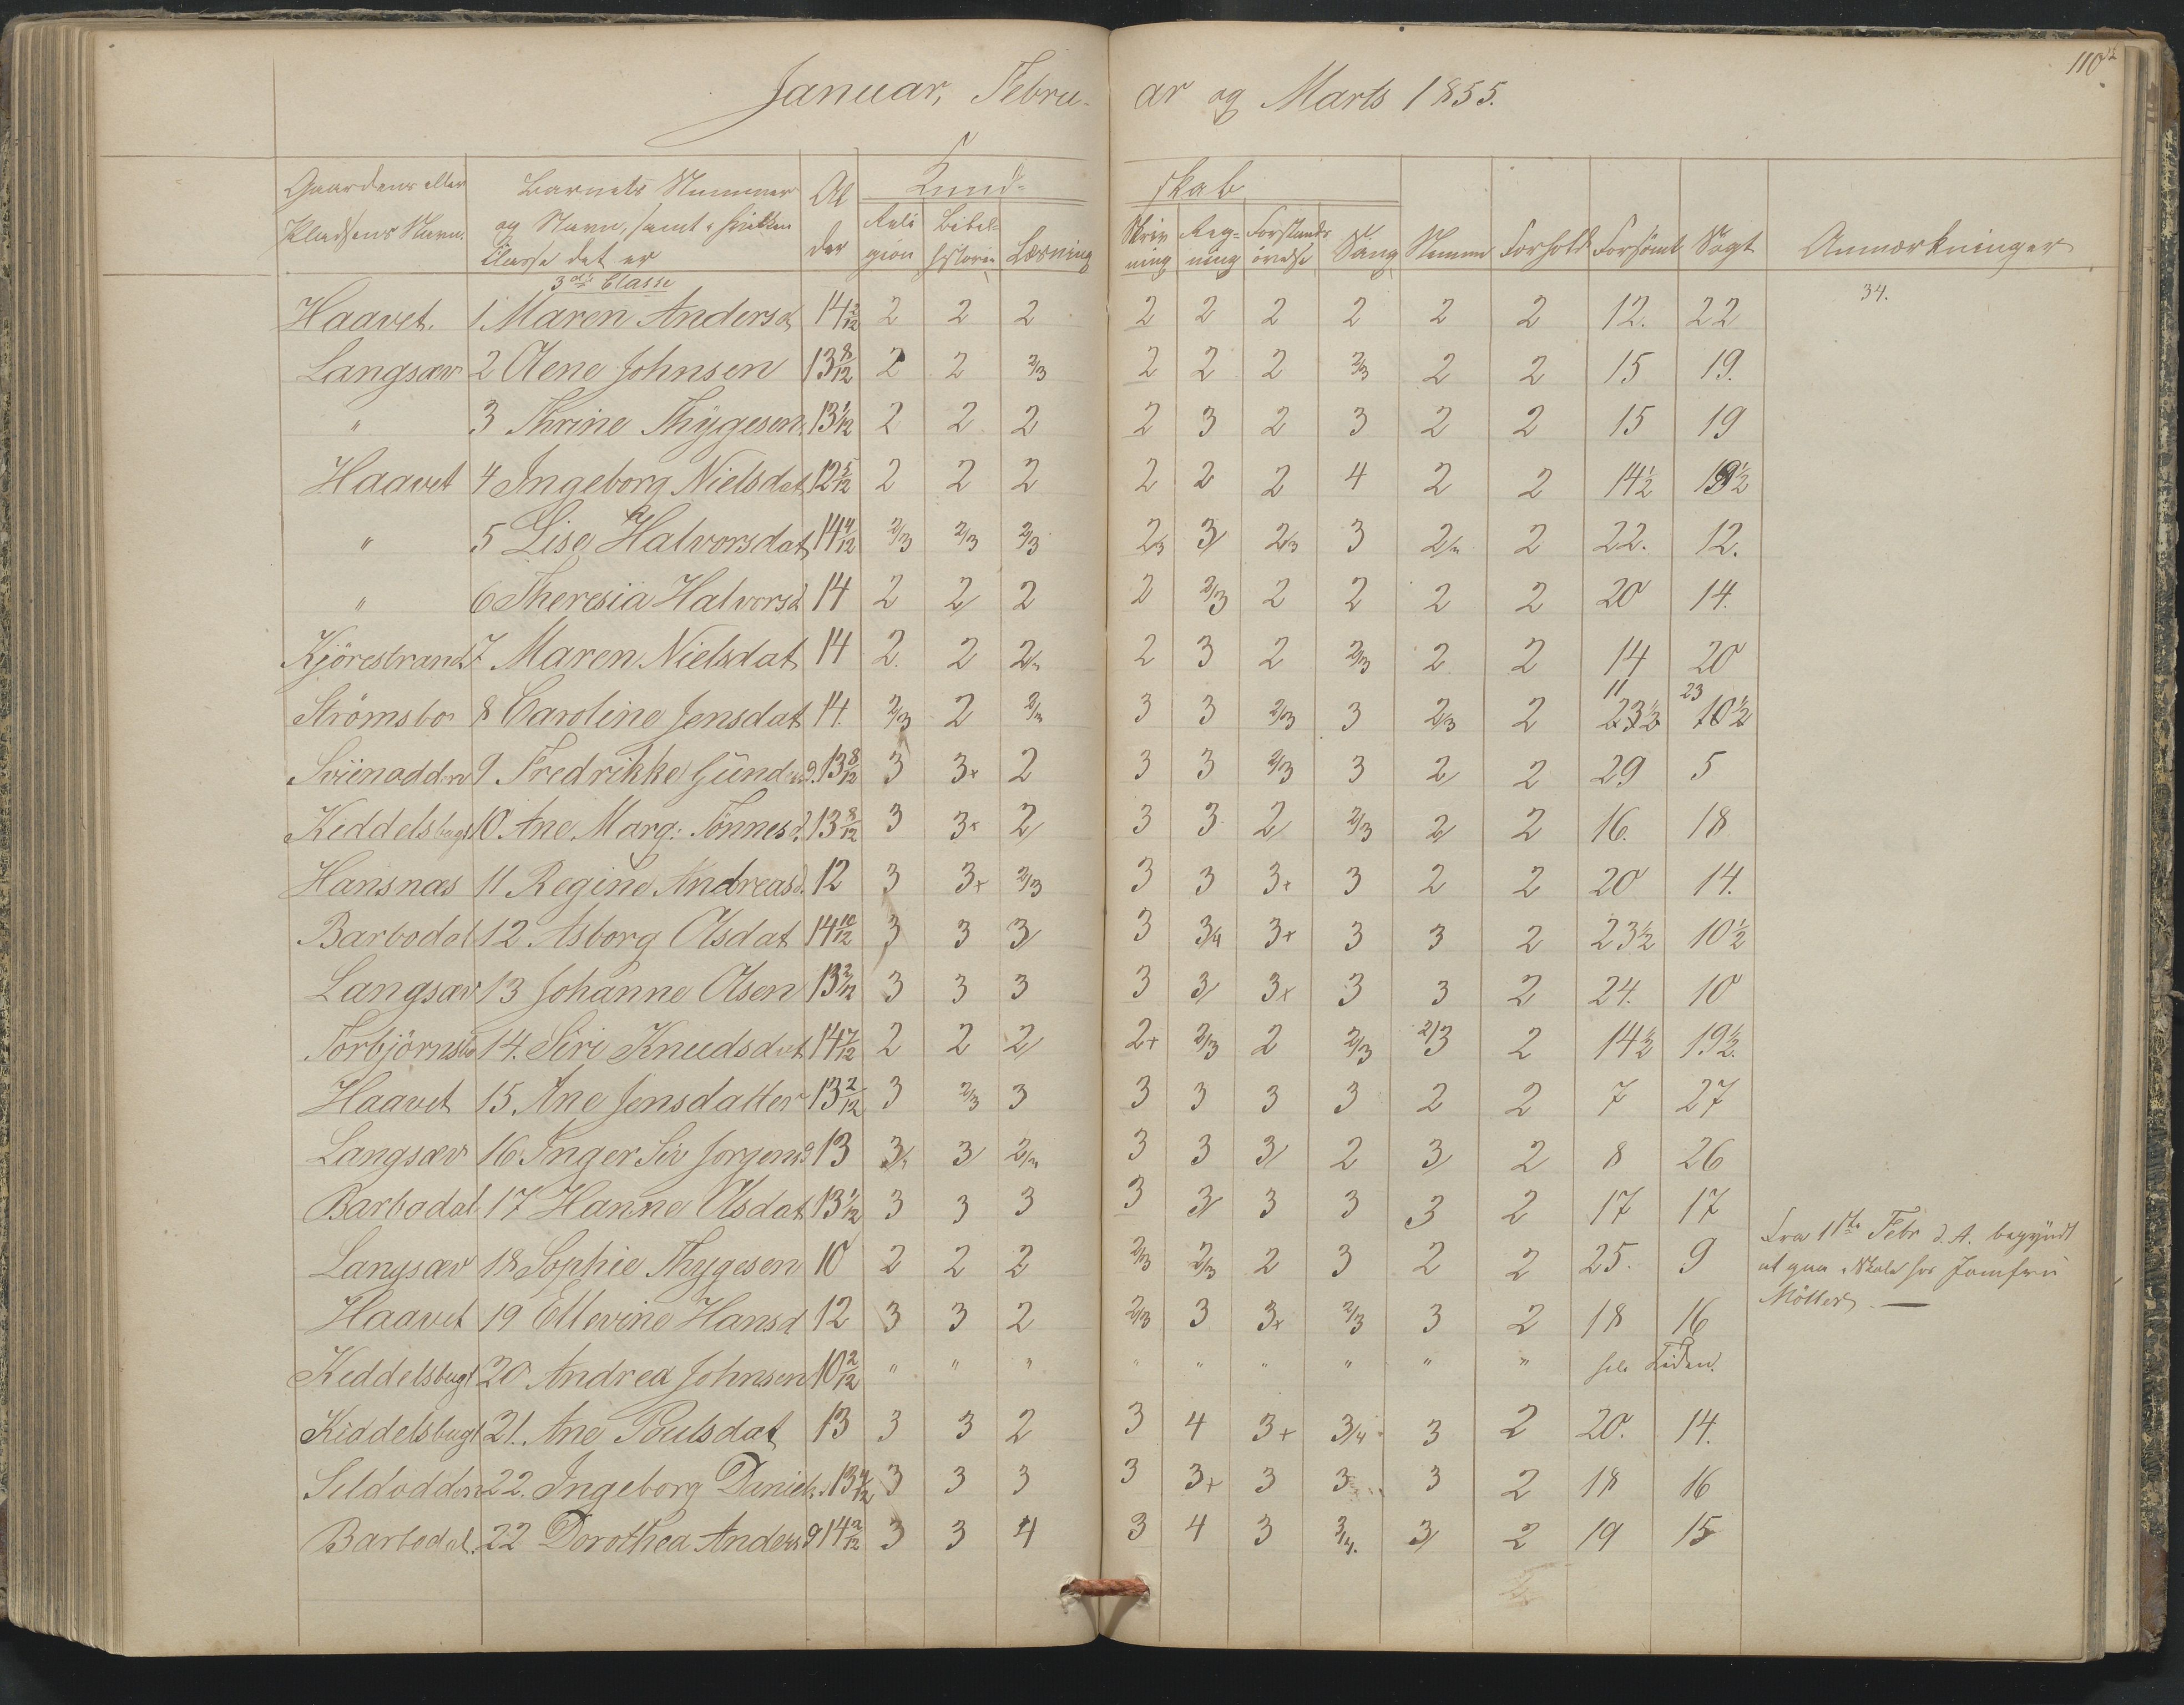 110
Januar, Februar og Marts 1855.
Gaardens eller Pladsens Navn. | Barnets Nummer og Navn, samt i hvilken Classe det er | Alder | Kundskab | Nemme | Forhold | Forsömt | Sögt | Anmærkninger
Religion | Bibelhistorie | Læsning | Skrivning | Regning | Forstandsövelse | Sang
3die Classe
34.
Haavet. 1 Maren Andersd 14 2/12 2 2 2 2 2 2 2 2 2 12. 22
Langsæv 2 Olene Johnsen 13 8/12 2 2 2/3 2 2 2 2/3 2 2 15 19.
" 3 Thrine Thygesen 13 1/12 2 2 2 2 3 2 3 2 2 15 19
Haavet 4 Ingeborg Nielsdat 12 5/12 2 2 2 2 2 2 4 2 2 14½ 19½
" 5 Lise Halvorsdat 14 4/12 2/3 2/3 2/3 2/3 3/ 2/3 3 2/3 2 22. 12.
" 6 Theresia Halvorsd 14 2 2/ 2 2 2/3 2 2 2 2 20 14.
Kjörestrand 7 Maren Nielsdat 14 2. 2 2/3 2 3 2 2/3 2 2 14 20
Strömsbo 8 Caroline Jensdat 14. 2/3 2 2/3 3 3 2/3 3 2/3 2 11 23½ 23 10½
Sviinodden 9 Fredrikke Gunders 13 8/12 3 3+ 2 3 3 2/3 3 2/ 2 29 5
Keddelsbugt 10 Ane Marg: Tönnesd. 13 8/12 3 3+ 2/ 3 3 2/ 2/3 2/ 2 16. 18
Hansnæs 11 Regine Andreasd. 12 3 3+ 2/3 3 3 3+ 3 2 2 20 14.
Barbodal 12 Asborg Olsdat 14 10/12 3 3 3/ 3 3/4 3+ 3 3 2 23½ 10½
Langsæv 13 Johanne Olsen 13 2/12 3 3 3 3 3/ 3+ 3 3 2 24. 10
Torbjörnsbo 14. Siri Knudsdat 14 7/12 2 2 2/ 2+ 2/3 2 2/3 2/3 2 14½ 19½.
Haavet 15. Ane Jensdatter 13 2/12 3 2/3 3 3 3 3 3 2 2 7 27
Langsæv 16 Inger Siv Jorgensd 13 3/ 3/ 2/3 3 3 3/ 2 3/ 2 8 26
Barbodal 17 Hanne Olsdat 13 1/12 3 3 3 3 3/ 3 3 3 2 17 17
Langsæv 18 Sophie Thygesen 10 2 2 2 2/3 2/3 2 3 2 2 25. 9 Fra 1ste Febr d. A. begyndt
at gaa Skole hos Jomfru
Möller. —
Haavet 19 Ellevine Hansd 12 3 3 2 2/3 3 3+ 2/3 3 2 18 16
Keddelsbugt 20 Andrea Johnsen 10 2/12 " " " " " " " " " hele Tiden.
Kiddelsbugt 21. Ane Poulsdat 13 3 3 2 3 4 3+ 3/4 3 2 20. 14.
Sildodden 22. Ingeborg Daniels. 13 4/12 3 3 3 3 3+ 3 3 3 2 18 16
Barbodal. 22 Dorothea Anders 14 2/12 3 3 4 3 4 3 3/4. 3/ 2 19 15